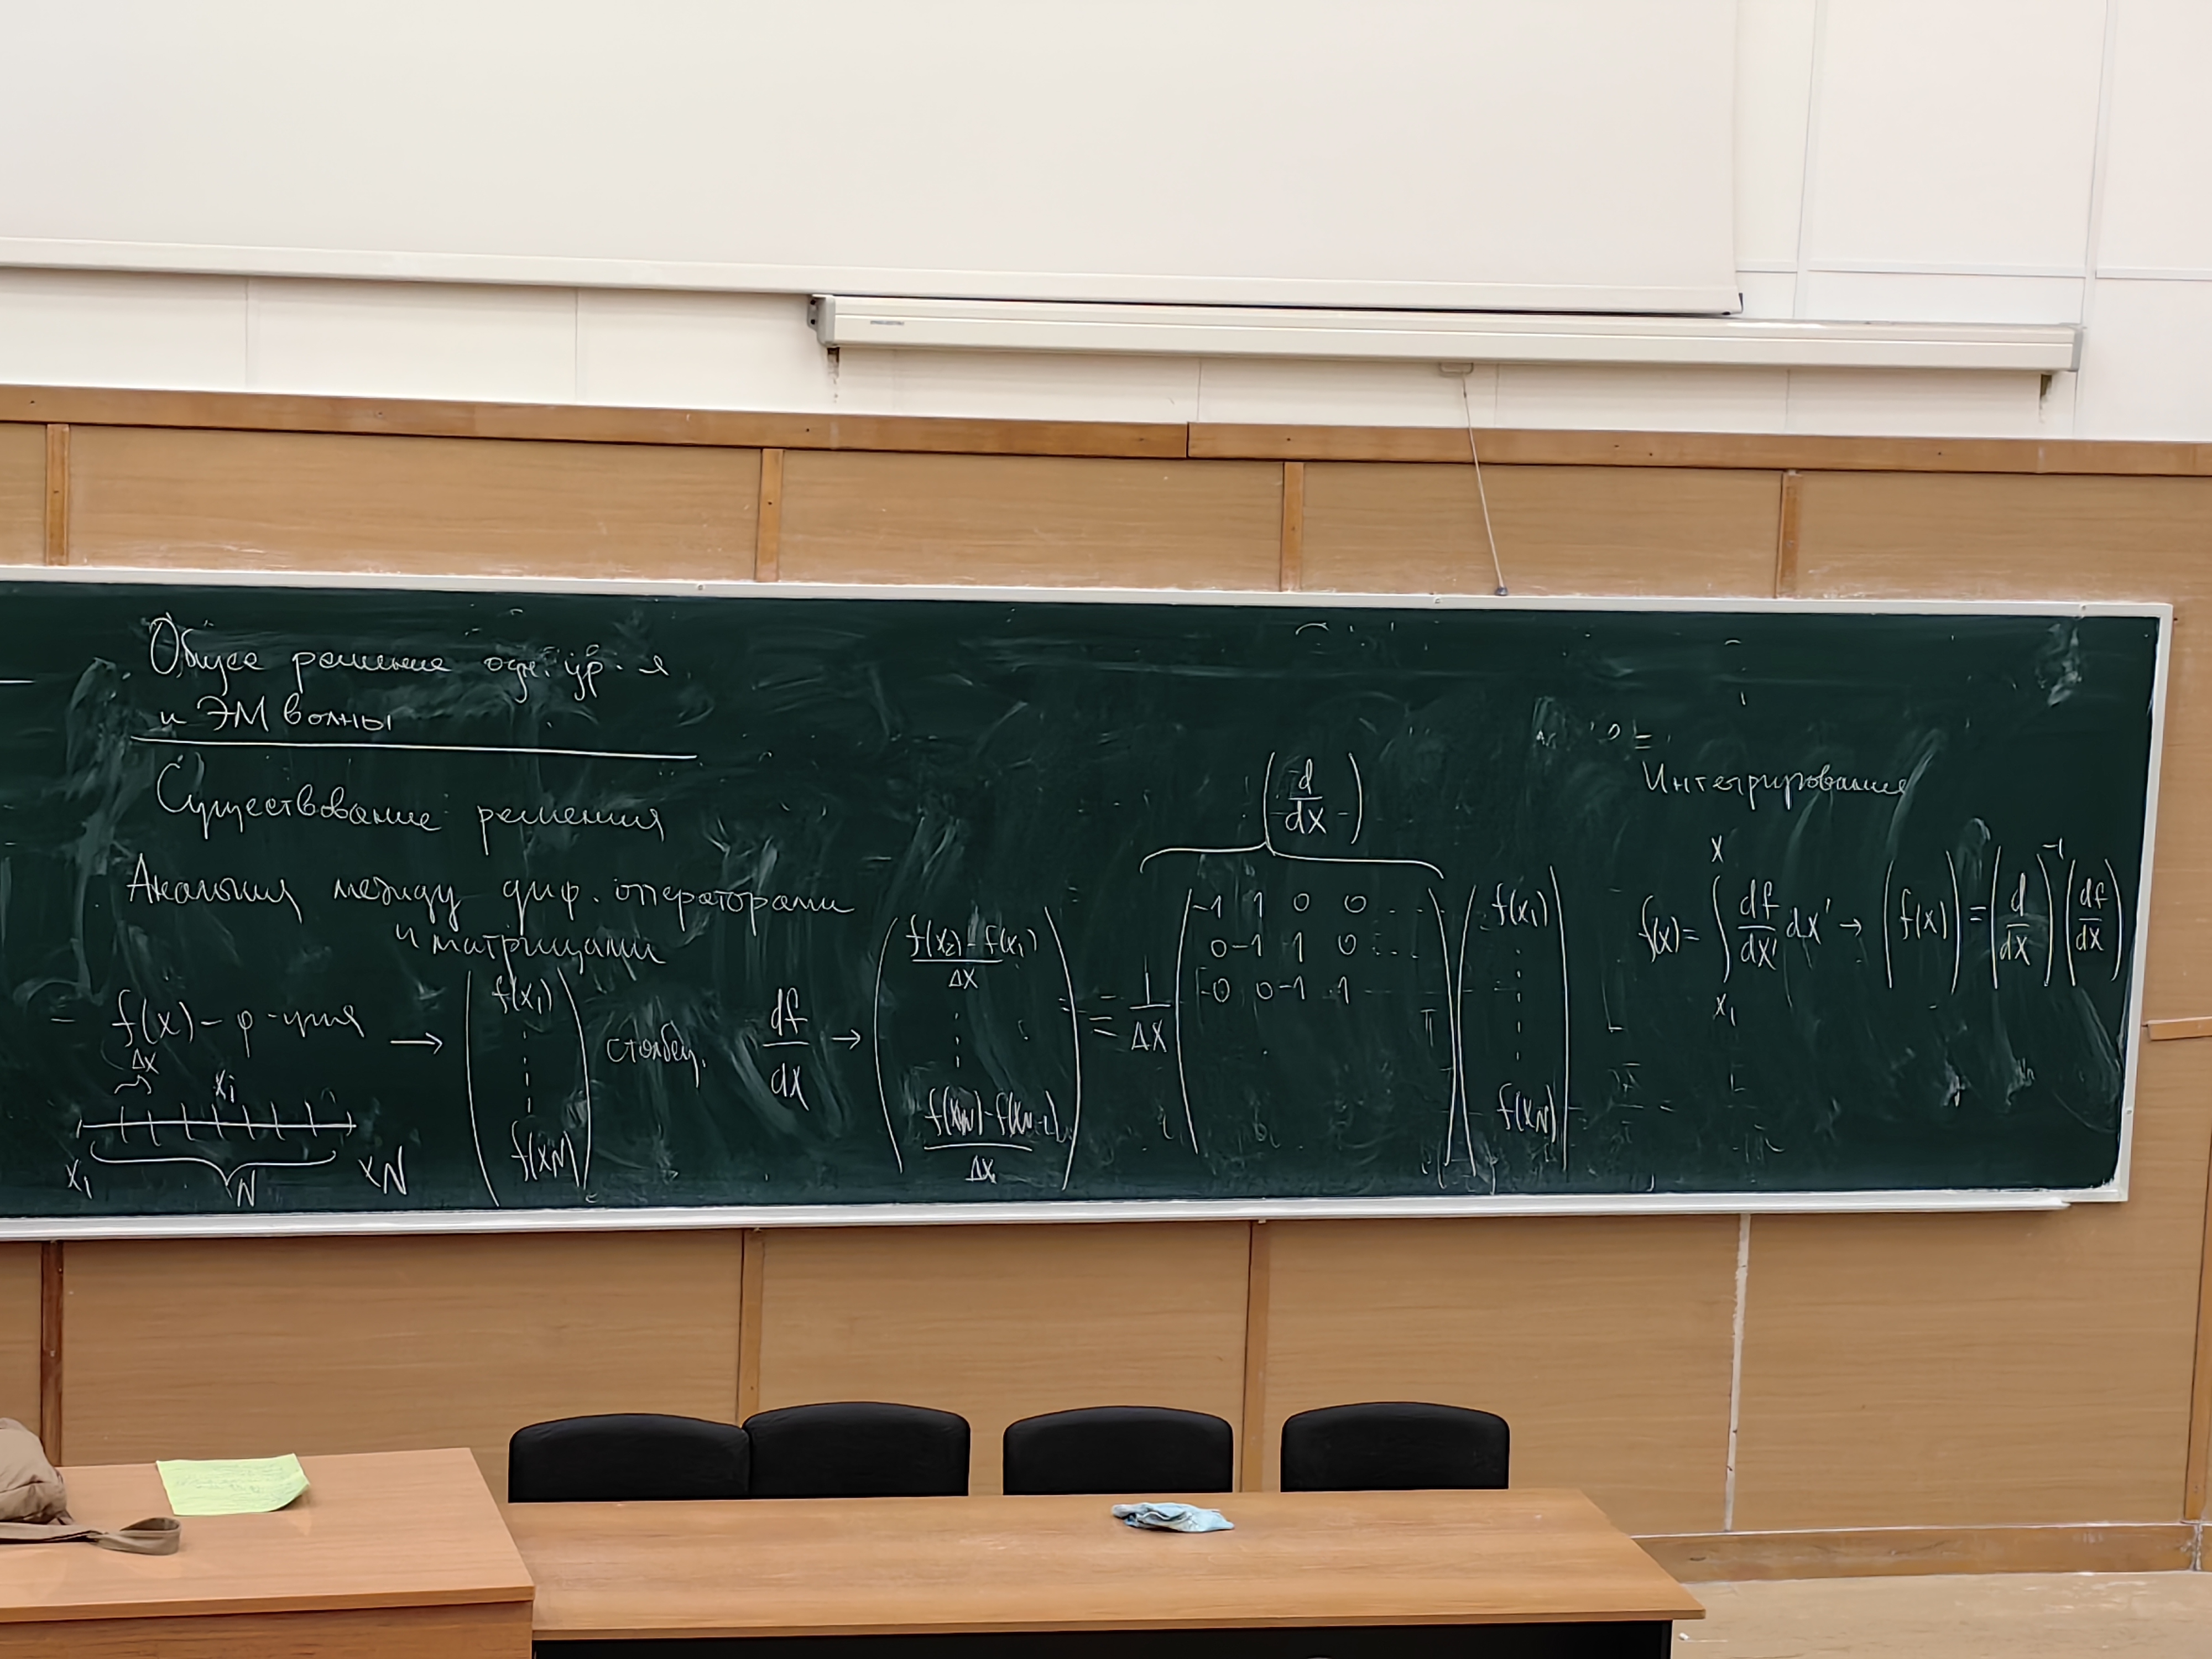 Общее решение одн. ур-я
и ЭМ волны
Существование решения
Аналогия между диф. операторами
и матрицами
f(x) – ф-ция → ( f(x₁) ⋮ f(x_N) ) столбец
Δx
x_i
x₁ N x_N
df/dx → ( (f(x₂) – f(x₁))/Δx ⋮ (f(x_N) – f(x_{N-1}))/Δx ) = 1/Δx ( -1 1 0 0 ... ; 0 -1 1 0 ... ; 0 0 -1 1 ... ) ( f(x₁) ⋮ f(x_N) )
(d/dx)
Интегрирование
f(x) = ∫_{x₁}^{x} df/dx' dx' → (f(x)) = (d/dx)⁻¹ (df/dx)